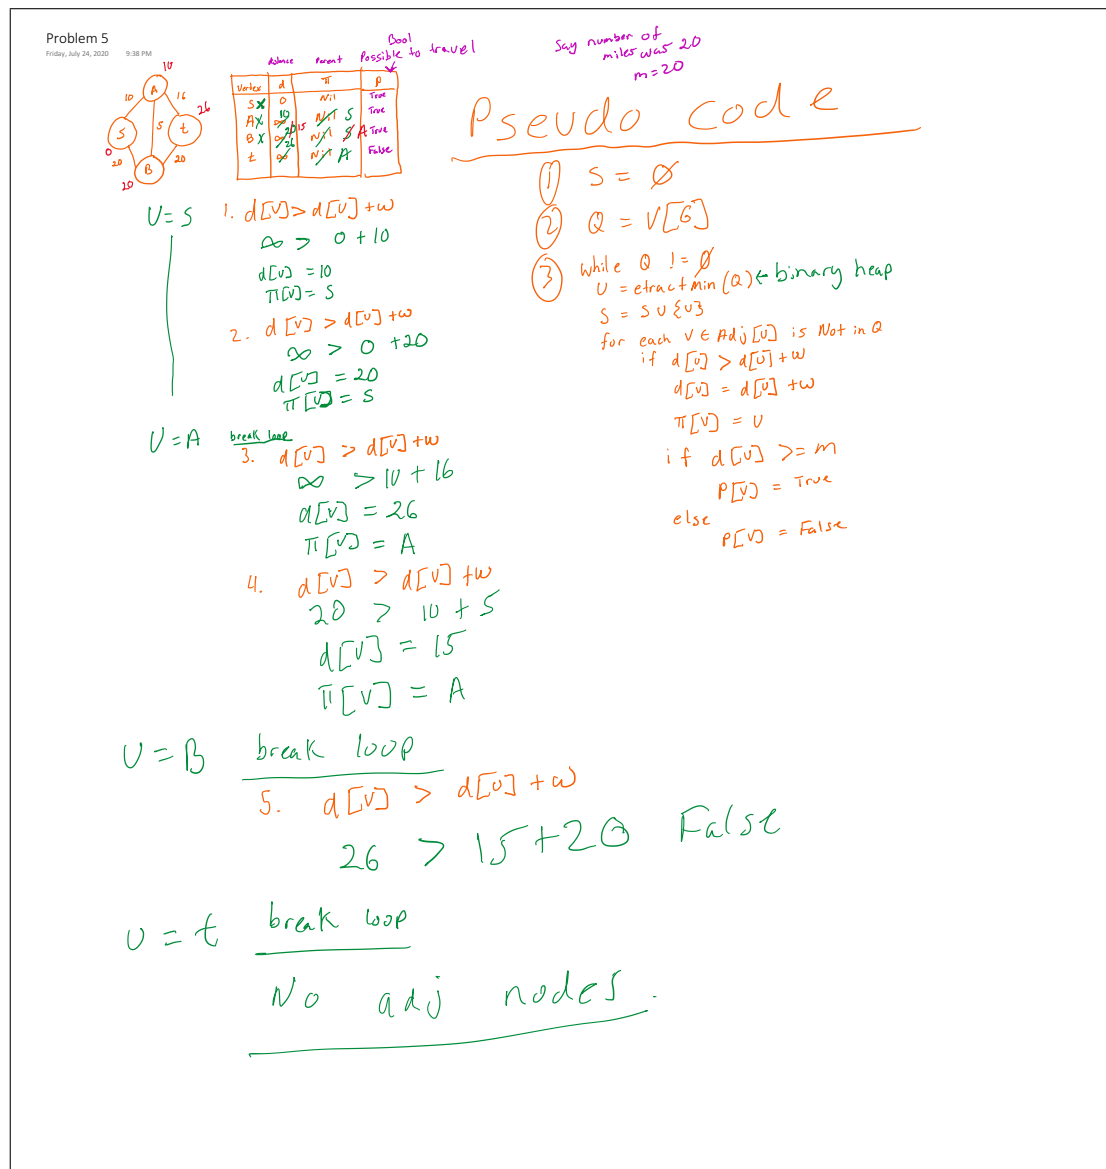 Problem 5
Friday, July 24, 2020 9:38 PM
Say number of
miles was 20
m=20
Bool
Possible to travel
distance Parent
Vertex d π P
S X 0 Nil True
A X ∞ 10 Nil S True
B X ∞ 20 15 Nil S A True
t ∞ 26 Nil A False
10
A
10 16
26
S 5 t
0
20 20
B
20
Pseudo code
① S = ∅
② Q = V[G]
③ while Q != ∅
U = etractmin(Q) ← binary heap
S = S ∪ {U}
for each V ∈ Adj[U] is Not in Q
if d[V] > d[U] + w
d[V] = d[U] + w
π[V] = U
if d[V] >= m
P[V] = True
else
P[V] = False
U = S
1. d[V] > d[U] + w
∞ > 0 + 10
d[V] = 10
π[V] = S
2. d[V] > d[U] + w
∞ > 0 + 20
d[V] = 20
π[V] = S
U = A break loop
3. d[V] > d[U] + w
∞ > 10 + 16
d[V] = 26
π[V] = A
4. d[V] > d[U] + w
20 > 10 + 5
d[V] = 15
π[V] = A
U = B break loop
5. d[V] > d[U] + w
26 > 15 + 20 False
U = t break loop
No adj nodes.